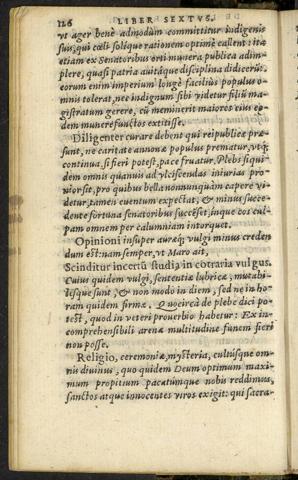 126 LIBER SEXTVS.
vt ager bene admodum committitur indigenis
suis, qui cœli soliq́ue rationem optimè callent: ita
etiam ex Senatoribus orti munera publica adim-
plere, quasi patria auitáque disciplina didicerũt.
eorum enim imperium longè facilius populus o-
mnis tolerat, nec indignum sibi videtur filiũ ma-
gistratum gerere, cũ meminerit maiores eius eo-
dem munere functos extitisse.
Diligenter curare debent qui reipublicæ præ-
sunt, ne caritate annonæ populus prematur, vtq́;
continua, si fieri potest, pace fruatur. Plebs siqui-
dem omnis quanuis ad vlciscendas iniurias pro
nior sit, pro quibus bella nonnunquàm capere vi-
detur, tamen euentum expectat, & minus succe-
dente fortuna senatoribus succẽset, inque eos cul-
pam omnem per calumniam intorquet.
Opinioni insuper auræq́; vulgi minus creden
dum est: nam semper, vt Maro ait,
Scinditur incertũ studia in cõtraria vulgus.
Cuius quidem vulgi, sentẽtiæ lubricæ, mutabi-
lesque sunt, & non modo in diem, sed ne in ho-
ram quidem firmæ. Quocircà de plebe dici po-
test, quod in veteri prouerbio habetur: Ex in-
comprehensibili arenæ multitudine funem fieri
non posse.
Religio, ceremoniæ, mysteria, cultúsque om-
nis diuinus, quo quidem Deum optimum maxi-
mum propitium pacatúmque nobis reddimus,
sanctos atque innocentes viros exigit: qui sacra-